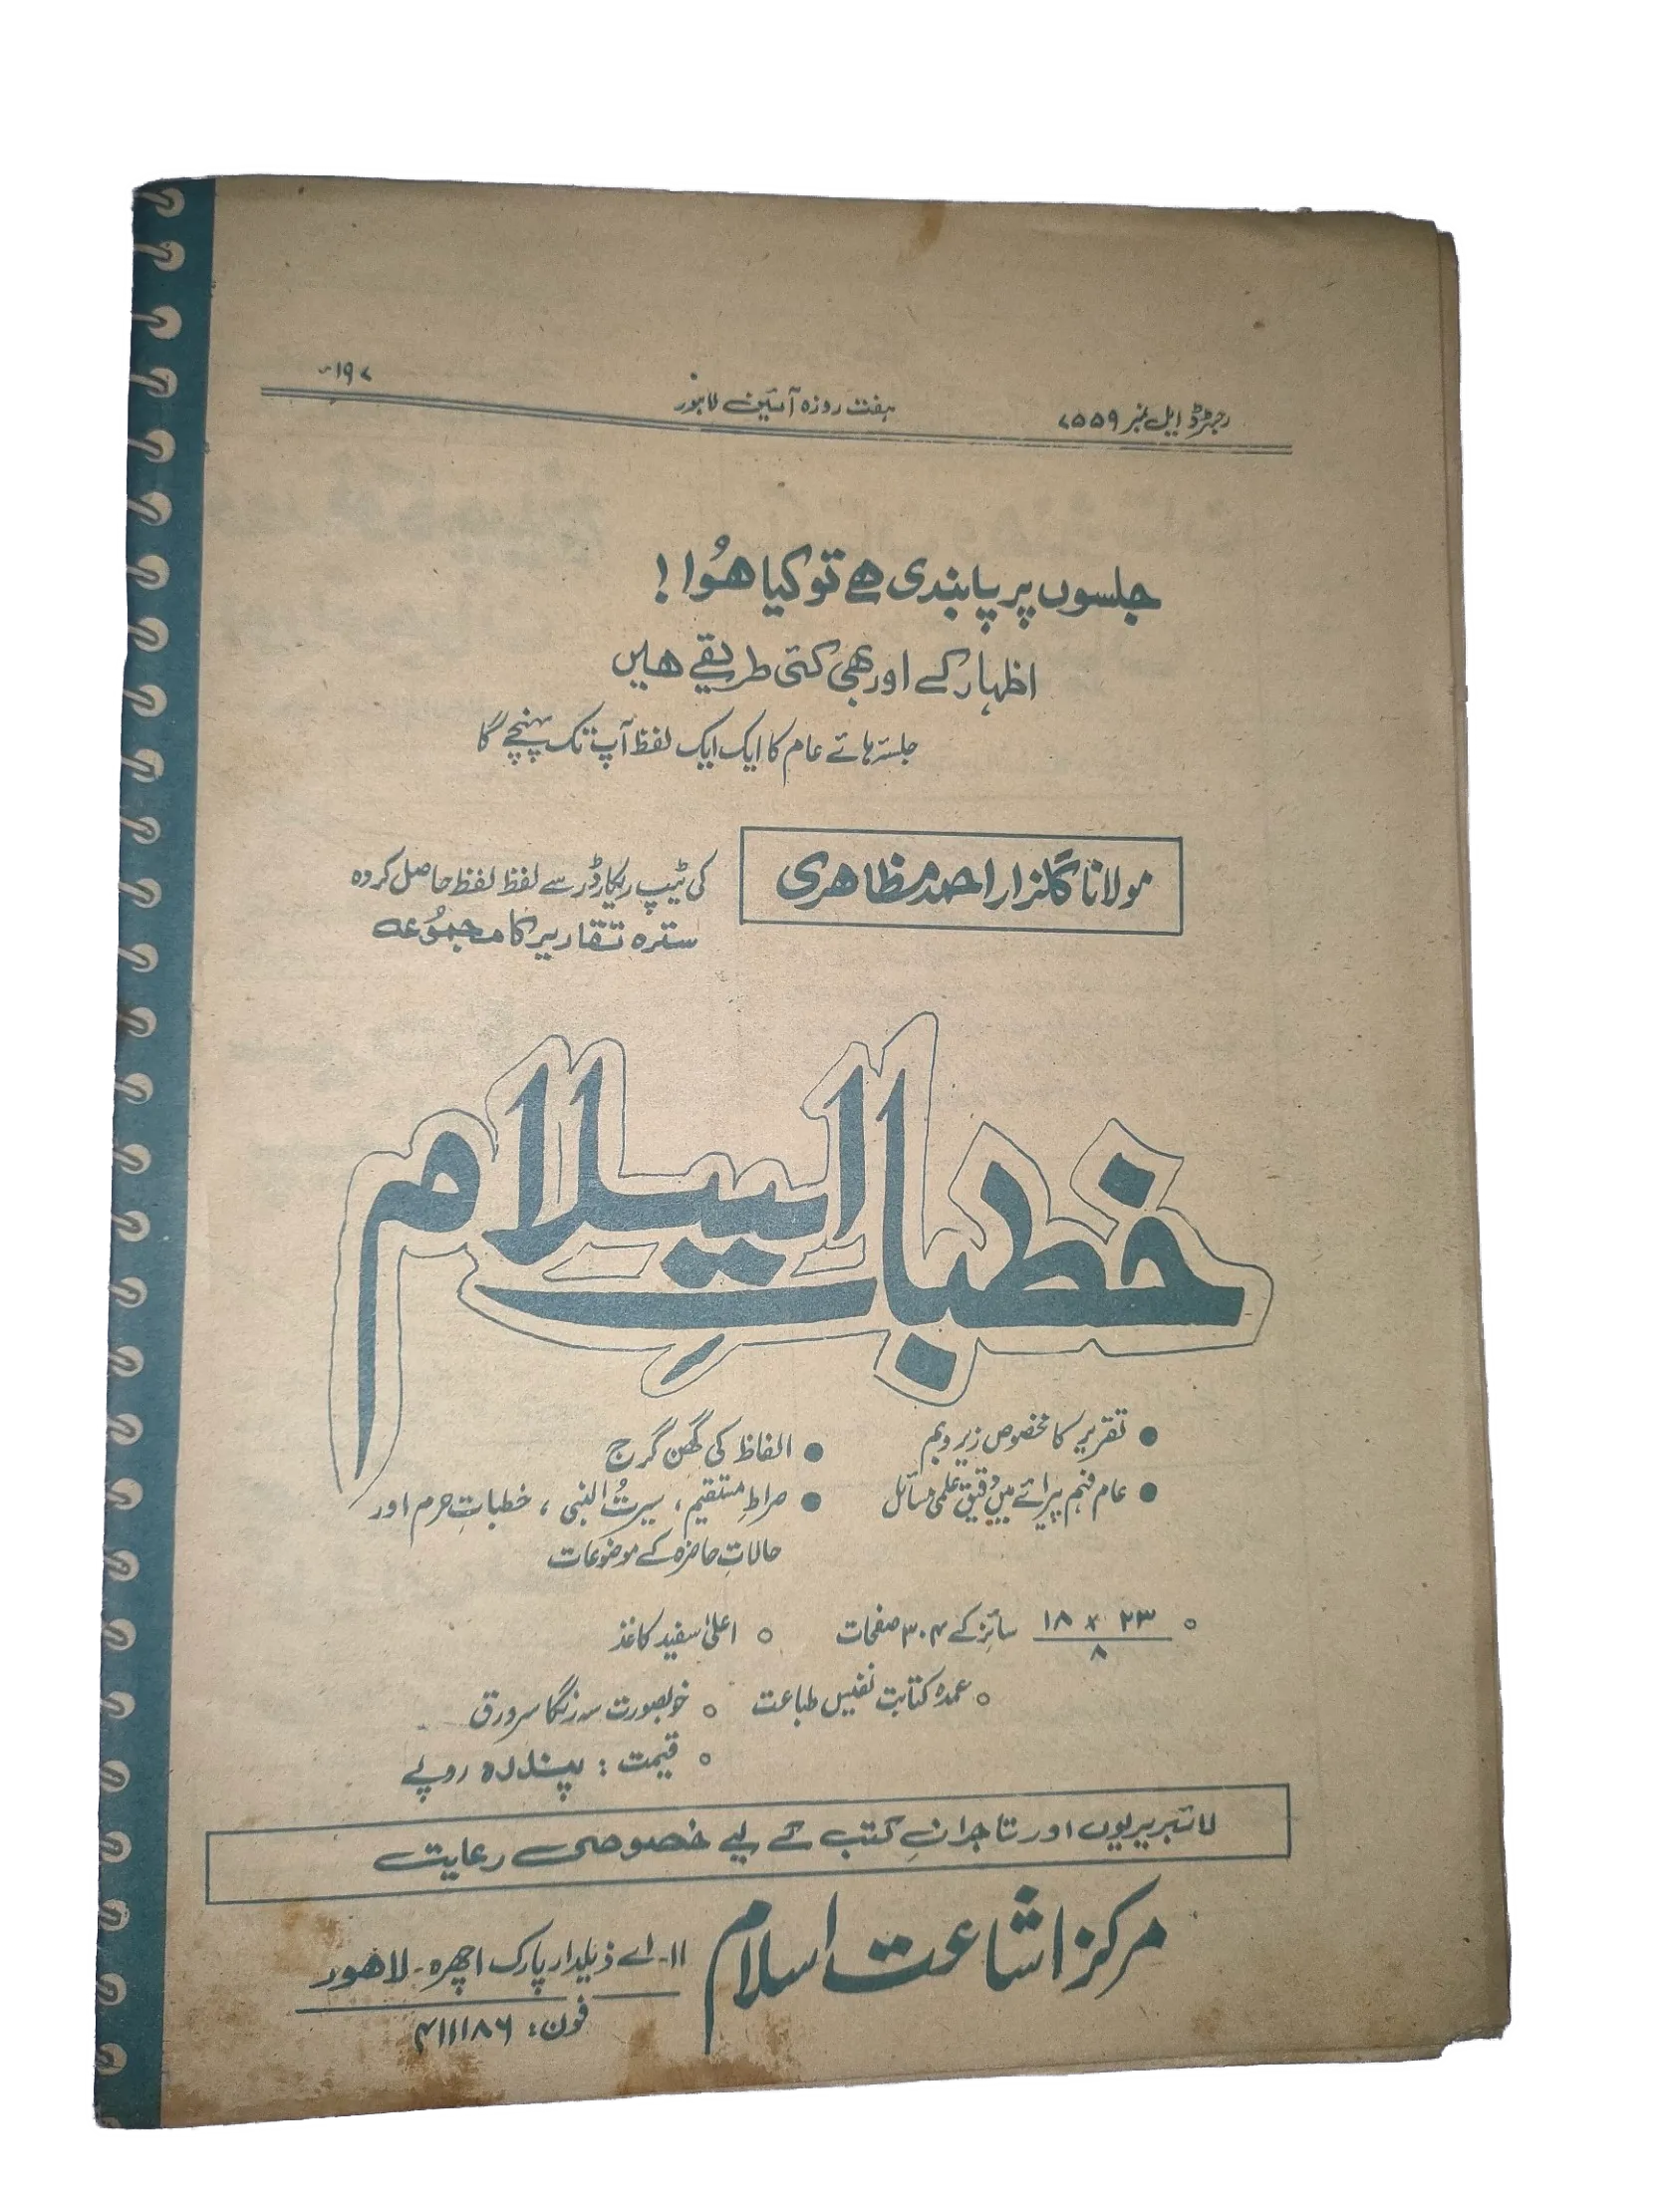 رجسٹرڈ ایل نمبر ۷۵۵۹
ہفت روزہ آئین لاہور
جلسوں پر پابندی ہے تو کیا ہُوا !
اظہار کے اور بھی کئی طریقے ہیں
جلسہ ہائے عام کا ایک ایک لفظ آپ تک پہنچے گا
مولانا گلزار احمد مظاہری
کی ٹیپ ریکارڈر سے لفظ لفظ حاصل کردہ
سترہ تقاریر کا مجموُعہ
خطباتِ اسلام
● تقریر کا مخصوص زیر و بم
● الفاظ کی گھن گرج
● عام فہم پیرائے میں دقیق علمی مسائل
● صراطِ مستقیم ، سیرتُ النبی ، خطباتِ حرم اور
حالاتِ حاضرہ کے موضوعات
○ ۲۳ × ۱۸ / ۸ سائز کے ۳۰۴ صفحات ○ اعلیٰ سفید کاغذ
○ عمدہ کتابت نفیس طباعت ○ خوبصورت سہ رنگا سرورق
○ قیمت : پندرہ روپے
لائبریریوں اور تاجرانِ کتب کے لیے خصوصی رعایت
مرکز اشاعت اسلام
۱۱۔ اے ذیلدار پارک اچھرہ۔ لاہور
فون: ۴۱۱۱۸۶